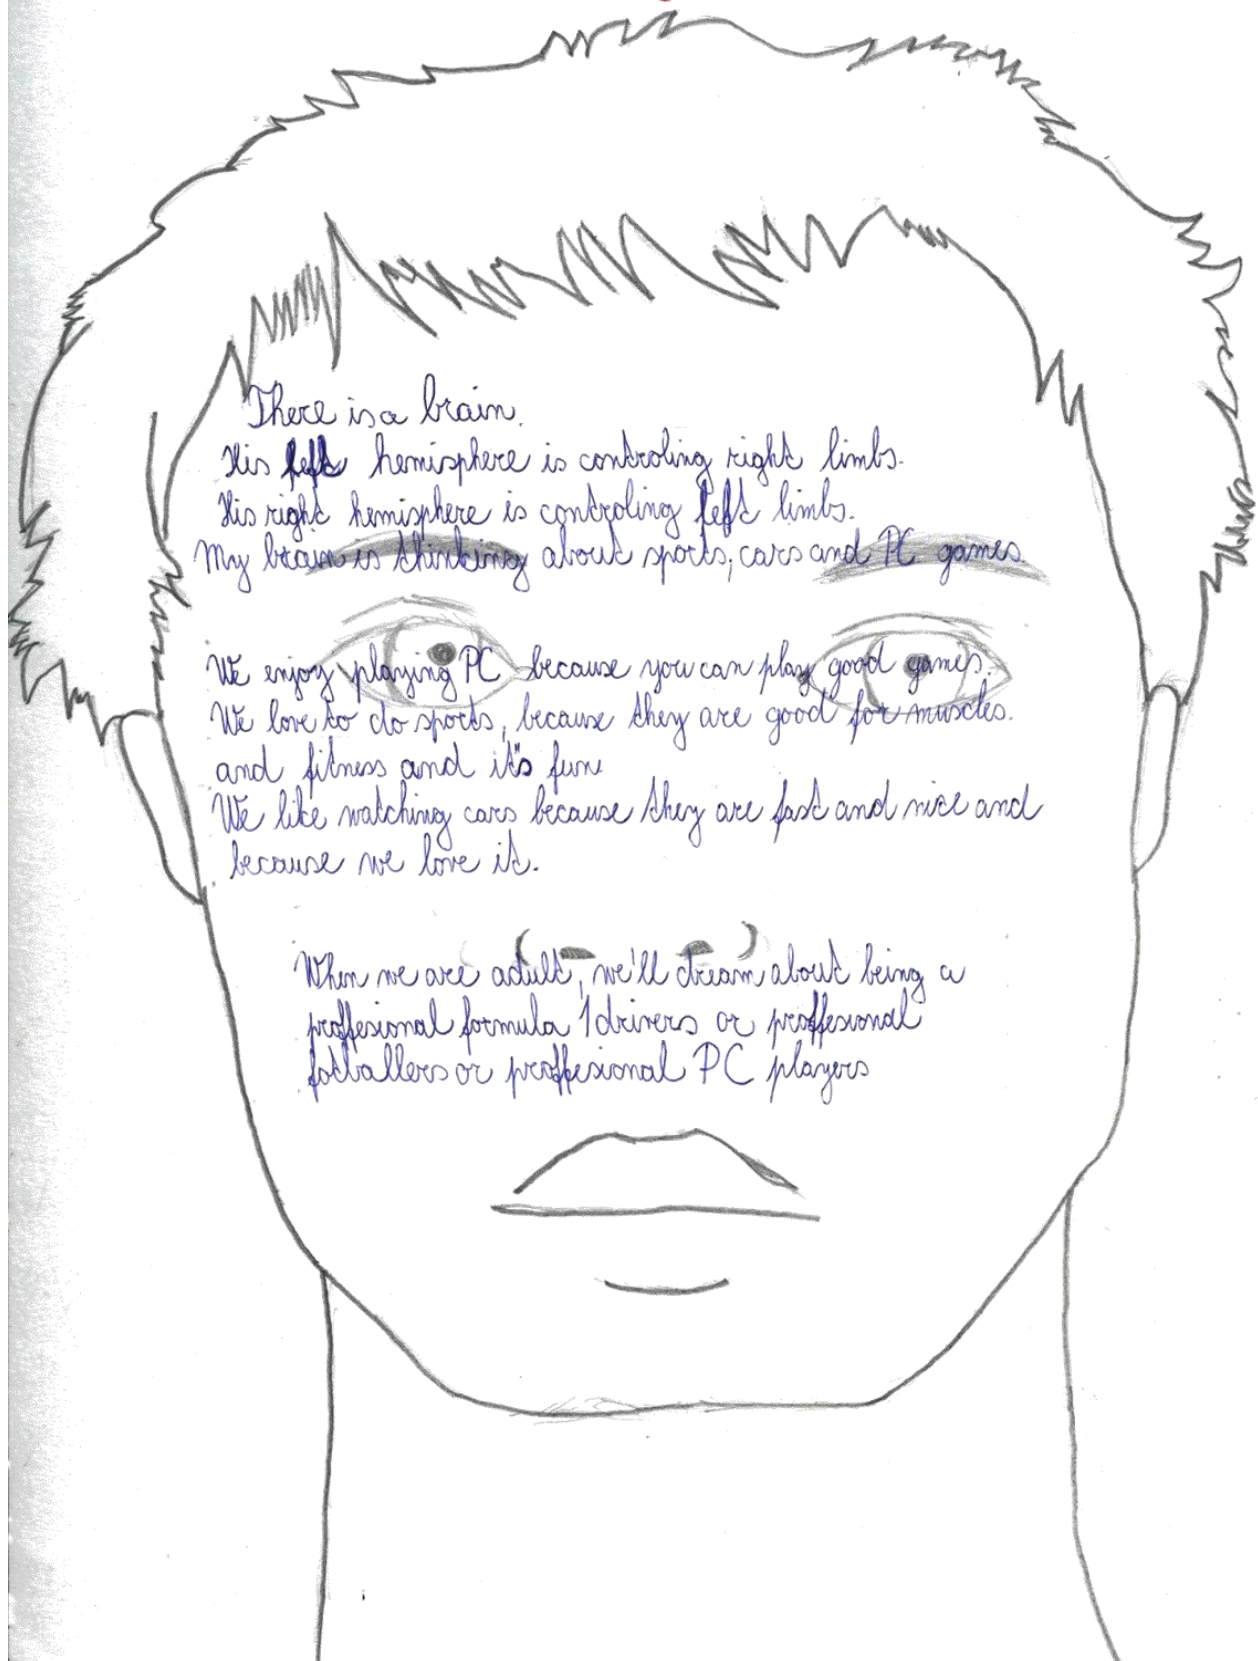 There is a brain.
His left hemisphere is controling right limbs.
His right hemisphere is controling left limbs.
My brain is thinking about sports, cars and PC games.
We enjoy playing PC because you can play good games.
We love to do sports, because they are good for muscles.
and fitness and it's fun
We like watching cars because they are fast and nice and
because we love it.
When we are adult, we'll dream about being a
proffesional formula 1 drivers or proffesional
fotballers or proffesional PC players